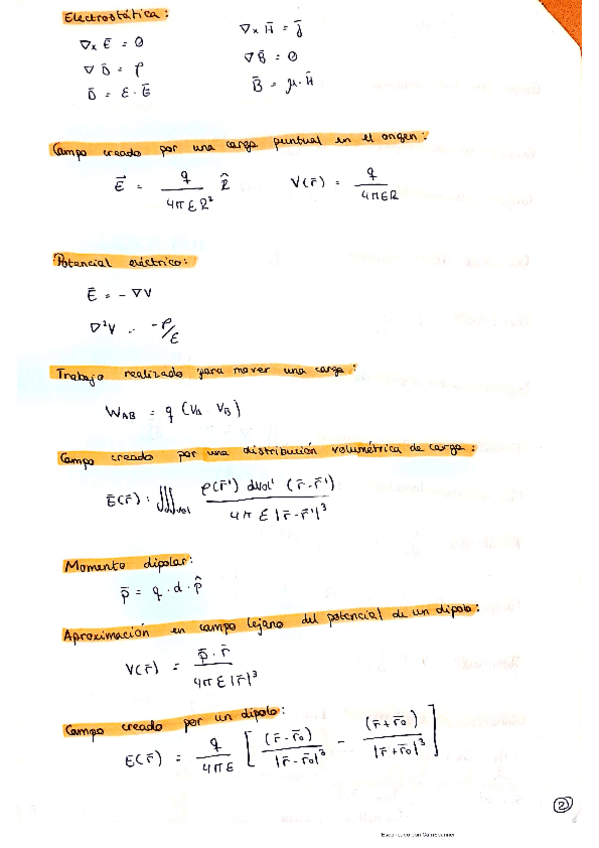 Electrostática:
∇x Ē = 0
∇ D̄ = ρ
D̄ = ε · Ē
∇x H̄ = J̄
∇ B̄ = 0
B̄ = μ · H̄
Campo creado por una carga puntual en el origen:
E⃗ = q / 4πεR² R̂
V(r̄) = q / 4πεR
Potencial eléctrico:
Ē = -∇V
∇²V = -ρ/ε
Trabajo realizado para mover una carga:
W_AB = q (V_A V_B)
Campo creado por una distribución volumétrica de carga:
Ē(r̄) : ∭vol ρ(r̄') dvol' (r̄-r̄') / 4π ε |r̄-r̄'|³
Momento dipolar:
p̄ = q · d · p̂
Aproximación en campo lejano del potencial de un dipolo:
V(r̄) = p̄ · r̄ / 4π ε |r̄|³
Campo creado por un dipolo:
E(r̄) = q / 4πε [ (r̄-r̄₀) / |r̄-r̄₀|³ - (r̄+r̄₀) / |r̄+r̄₀|³ ]
2
Escaneado con CamScanner